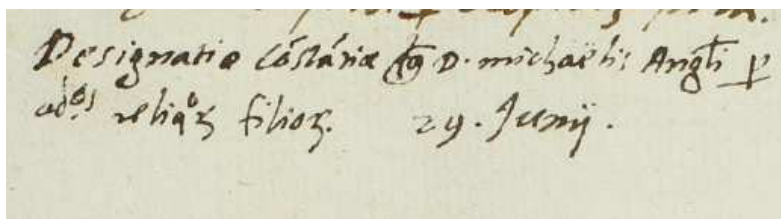 Designatio Constantiæ D. Michaëlis Angli p
reliqos filios. 29. Junij.